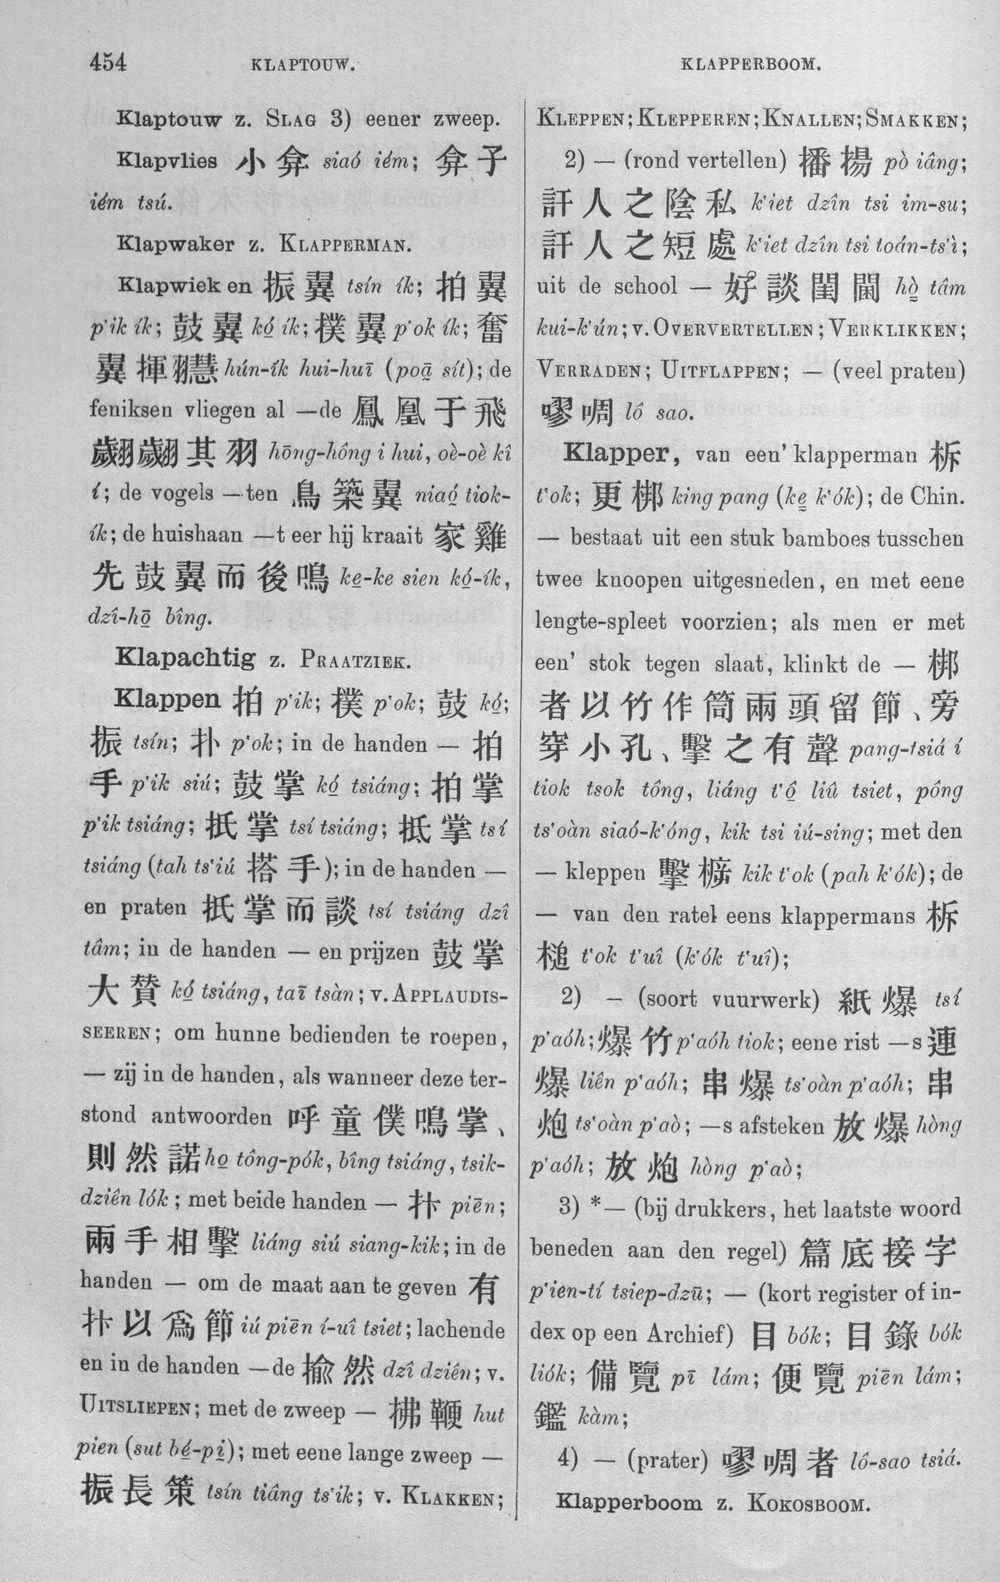 454
KLAPTOUW.
KLAPPERBOOM.
Klaptouw z. SLAG 3) eener zweep.
Klapvlies 小弇 siaó iém; 弇子
iém tsú.
Klapwaker z. KLAPPERMAN.
Klapwieken 振翼 tsín ík; 拍翼
p'ik ík; 鼓翼 kó̤ ík; 撲翼 p'ok ík; 奮
翼揮 hún-ík hui-huī (poā̤ sít); de
feniksen vliegen al —de 鳳凰于飛
翽翽其羽 hōng-hông i hui, oè-oè kî
í; de vogels —ten 鳥築翼 niaó̤ tiok-
ík; de huishaan —t eer hij kraait 家雞
先鼓翼而後鳴 ke̤-ke sien kó̤-ík,
dzî-hō̤ bîng.
Klapachtig z. PRAATZIEK.
Klappen 拍 p'ik; 撲 p'ok; 鼓 kó̤;
振 tsín; 扑 p'ok; in de handen — 拍
手 p'ik siú; 鼓掌 kó̤ tsiáng; 拍掌
p'ik tsiáng; 抵掌 tsí tsiáng; 抵掌 tsí
tsiáng (tah ts'iú 搭手); in de handen —
en praten 抵掌而談 tsí tsiáng dzî
tâm; in de handen — en prijzen 鼓掌
大贊 kó̤ tsiáng, taī tsàn; v. APPLAUDIS-
SEEREN; om hunne bedienden te roepen,
— zij in de handen, als wanneer deze ter-
stond antwoorden 呼童僕鳴掌、
則然諾 ho̤ tông-pók, bîng tsiáng, tsik-
dziên lók; met beide handen — 抃 piēn;
兩手相擊 liáng siú siang-kik; in de
handen — om de maat aan te geven 有
抃以爲節 iú piēn í-uî tsiet; lachende
en in de handen —de 揄然 dzî dziên; v.
UITSLIEPEN; met de zweep — 拂鞭 hut
pien (sut bé̤-pi̤); met eene lange zweep —
振長策 tsín tiâng ts'ik; v. KLAKKEN;
KLEPPEN; KLEPPEREN; KNALLEN; SMAKKEN;
2) — (rond vertellen) 播揚 pò iâng;
訐人之陰私 k'iet dzîn tsi im-su;
訐人之短處 k'iet dzîn tsi toán-ts'ì;
uit de school — 好談閨閫 hò̤ tâm
kui-k'ún; v. OVERVERTELLEN; VERKLIKKEN;
VERRADEN; UITFLAPPEN; — (veel praten)
嘐啁 lô sao.
Klapper, van een' klapperman 柝
t'ok; 更梆 king pang (ke̤ k'ók); de Chin.
— bestaat uit een stuk bamboes tusschen
twee knoopen uitgesneden, en met eene
lengte-spleet voorzien; als men er met
een' stok tegen slaat, klinkt de — 梆
者以竹作筒兩頭留節、旁
穿小孔、擊之有聲 pang-tsiá í
tiok tsok tông, liáng t'ô̤ liû tsiet, pông
ts'oàn siaó-k'óng, kik tsi iú-sing; met den
— kleppen 擊㯓 kik t'ok (pah k'ók); de
— van den ratel eens klappermans 柝
槌 t'ok t'uî (k'ók t'uî);
2) — (soort vuurwerk) 紙爆 tsí
p'aóh; 爆竹 p'aóh tiok; eene rist —s 連
爆 liên p'aóh; 串爆 ts'oàn p'aóh; 串
炮 ts'oàn p'aò; —s afsteken 放爆 hòng
p'aóh; 放炮 hòng p'aò;
3) *— (bij drukkers, het laatste woord
beneden aan den regel) 篇底接字
p'ien-tí tsiep-dzū; — (kort register of in-
dex op een Archief) 目 bók; 目錄 bók
liók; 備覽 pī lám; 便覽 piēn lám;
鑑 kàm;
4) — (prater) 嘐啁者 lô-sao tsiá.
Klapperboom z. KOKOSBOOM.